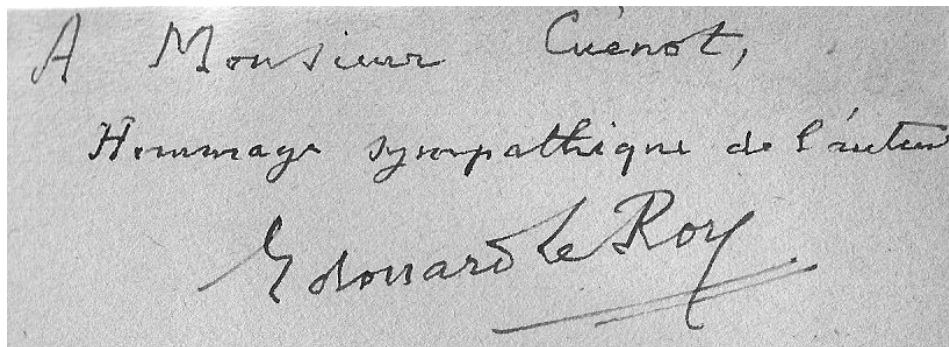 A Monsieur Cuénot,
Hommage sympathique de l'auteur
Edouard Le Roy